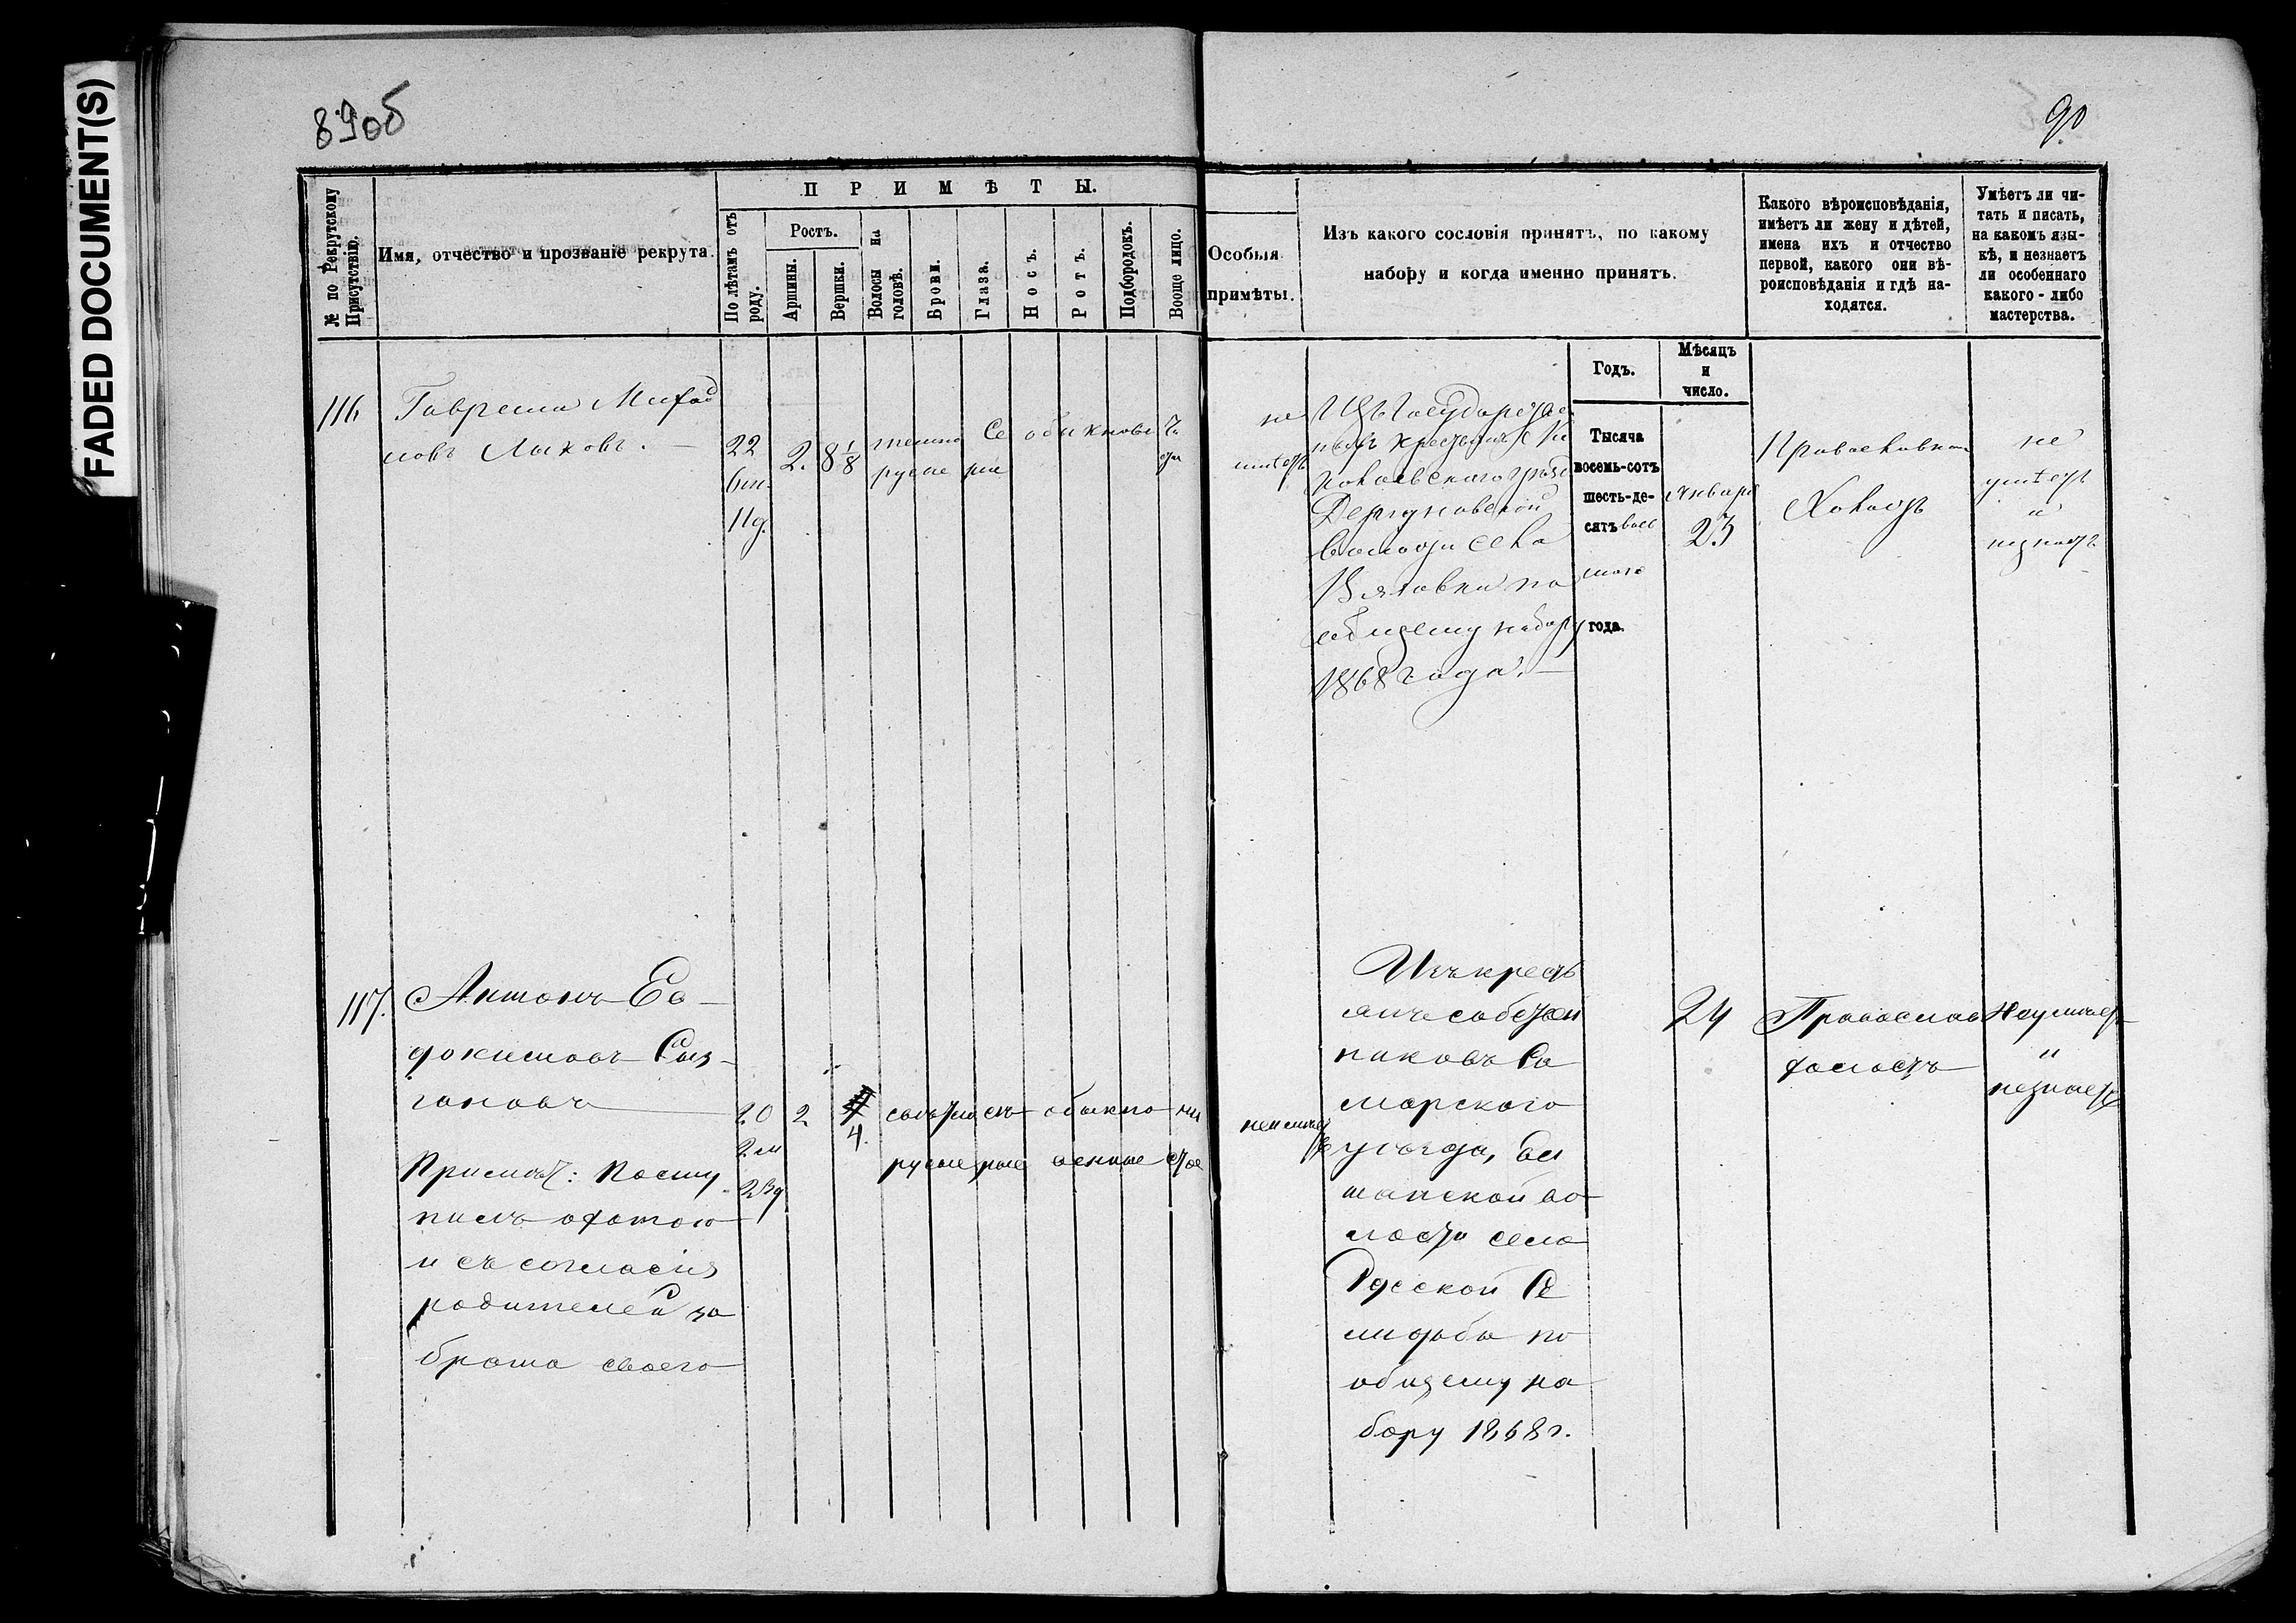 FADED DOCUMENT(S)
89об
90
№ по Рекрутскому Присутствію.
Имя, отчество и прозваніе рекрута.
ПРИМѢТЫ.
По лѣтамъ отъ роду.
Ростъ.
Аршины.
Вершки.
Волосы на головѣ.
Брови.
Глаза.
Носъ.
Ротъ.
Подбородокъ.
Вообще лицо.
Особыя
примѣты.
Изъ какого сословія принятъ, по какому
набору и когда именно принятъ.
Годъ.
Мѣсяцъ
и
число.
Какого вѣроисповѣданія,
имѣетъ ли жену и дѣтей,
имена ихъ и отчество
первой, какого они вѣ-
роисповѣданія и гдѣ на-
ходятся.
Умѣетъ ли чи-
тать и писать,
на какомъ язы-
кѣ, и незнаетъ
ли особеннаго
какого-либо
мастерства.
116
Гаврила Михай
ловъ Лыковъ.
22
6 м.
11 д.
2.
8 1/8
темно
русые
се
рые
обыкнове
чи
стое
не
имѣетъ
Изъ Государствен
ныхъ крестьянъ Ни
колаевскаго уѣзда
волости села
Вязовки по
общему набору
1868 года.
Тысяча
восемь-сотъ
шесть-де-
сятъ вось
маго
года.
Января
23
Православнаго
Холостъ
не
умѣетъ
и
незнаетъ
117.
Антонъ Ев
докимовъ Сыз
гановъ
Примѣч: Посту
пилъ охотою
и съ согласія
родителей за
брата своего
20
2 м
23 д
2
4.
свѣтло
русые
сѣ
рые
обыкно
венные
чи
стое
неимѣетъ
Изъ крестъ
янъ собствен
никовъ Са
марскаго
уѣзда, Ел
шанской во
лости села
Русской Се
литьбы по
общему на
бору 1868 г.
24
Православ
холостъ
Неумѣетъ
и
незнаетъ